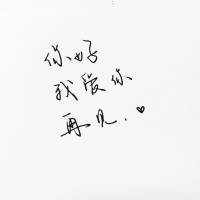 你好
我爱你
再见.♥